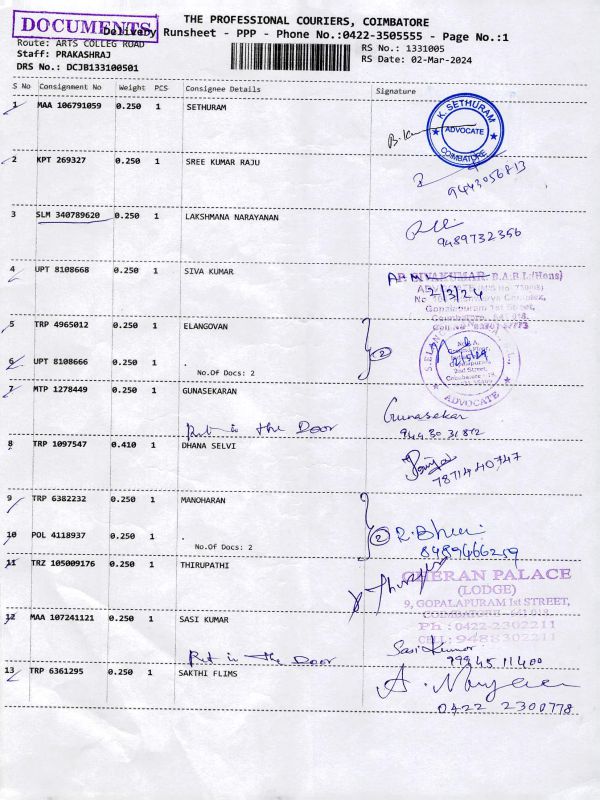 DOCUMENTS
THE PROFESSIONAL COURIERS, COIMBATORE
Delivery Runsheet - PPP - Phone No.:0422-3505555 - Page No.:1
Route: ARTS COLLEG ROAD
RS No.: 1331005
Staff: PRAKASHRAJ
RS Date: 02-Mar-2024
DRS No.: DCJB133100501
S No Consignment No Weight PCS Consignee Details Signature
1 MAA 106791059 0.250 1 SETHURAM
K. SETHURAM
ADVOCATE
COIMBATORE
2 KPT 269327 0.250 1 SREE KUMAR RAJU
9443056813
3 SLM 340789620 0.250 1 LAKSHMANA NARAYANAN
9489732356
4 UPT 8108668 0.250 1 SIVA KUMAR
B.A B.L.(Hons)
2/3/24
Gopalapuram 1st Street,
5 TRP 4965012 0.250 1 ELANGOVAN
2
6 UPT 8108666 0.250 1 .
No.Of Docs: 2
2nd Street,
ADVOCATE
7 MTP 1278449 0.250 1 GUNASEKARAN
Gunasekar
Put in the Door
8 TRP 1097547 0.410 1 DHANA SELVI
7871440747
9 TRP 6382232 0.250 1 MANOHARAN
2
10 POL 4118937 0.250 1 .
No.Of Docs: 2
8489466259
11 TRZ 105009176 0.250 1 THIRUPATHI
CHERAN PALACE
(LODGE)
9, GOPALAPURAM 1st STREET,
Ph : 0422-2302211
CELL: 9488302211
12 MAA 107241121 0.250 1 SASI KUMAR
Put in the Door
Sasi Kumar
9994511400
13 TRP 6361295 0.250 1 SAKTHI FLIMS
0422 2300778